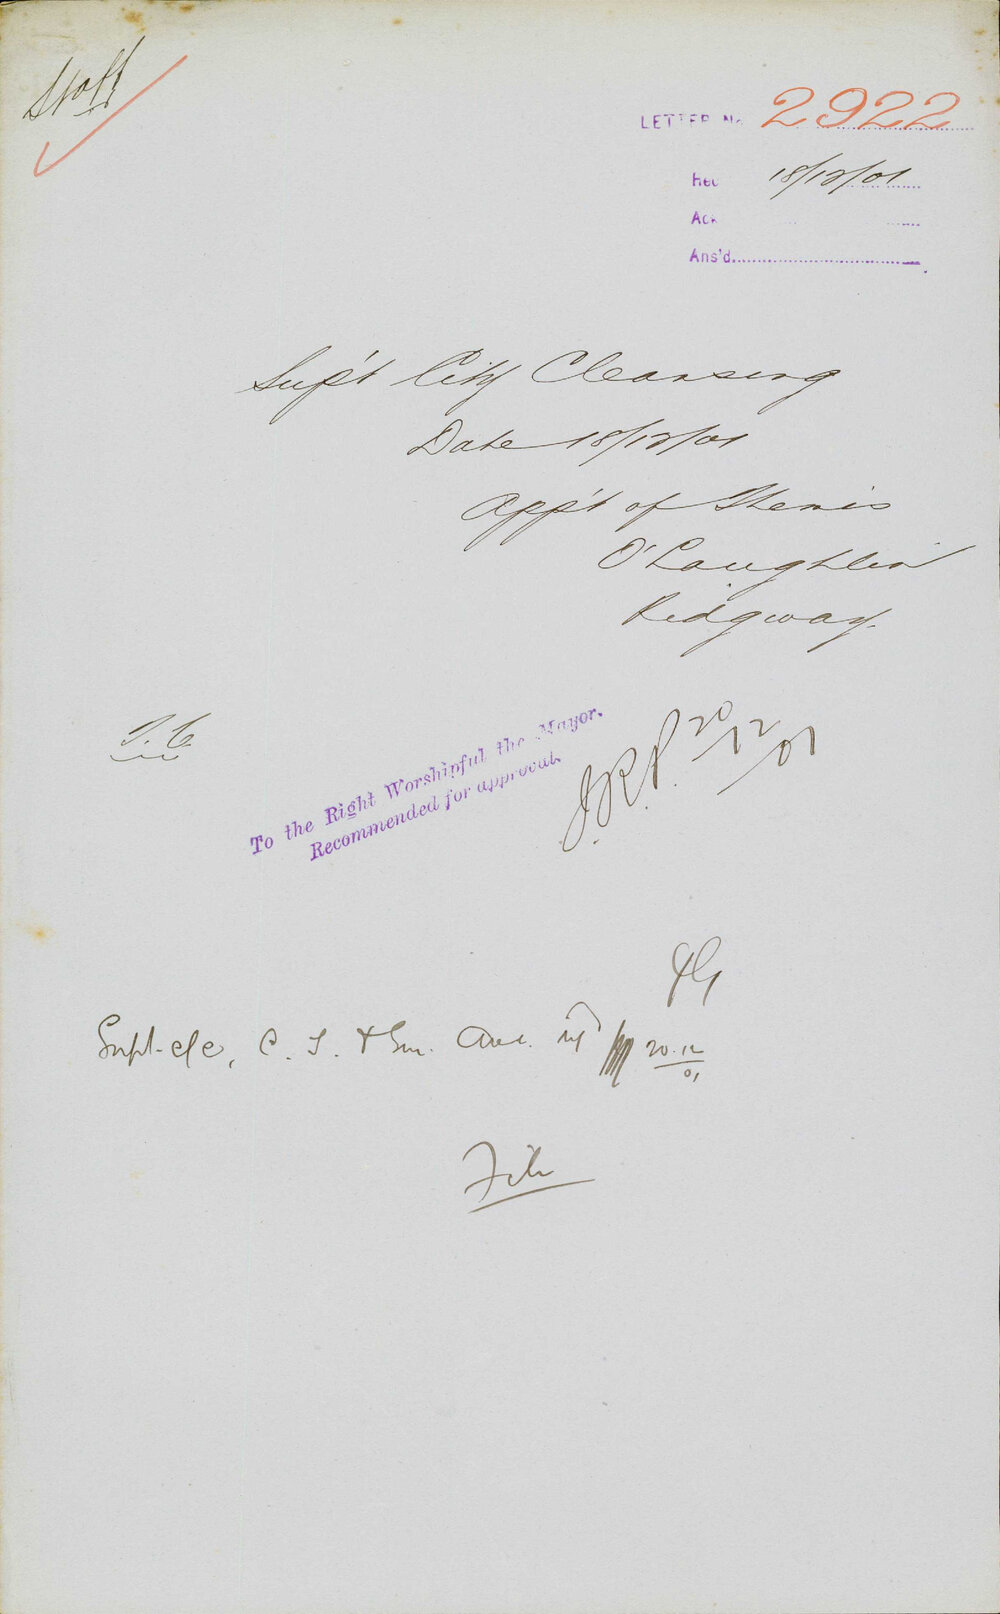 Staff
LETTER No. 2922
Rec 18/12/01
Ack
Ans'd
Sup't City Cleansing
Date 18/12/01
App't of
O'Loughlin
Ridgway.
T.C.
To the Right Worshipful the Mayor.
Recommended for approval.
20/12/01
Supt. c/c, C. S. &
20.12/01
File